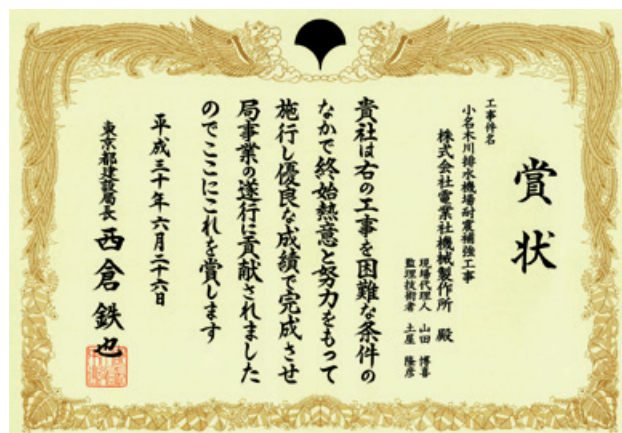 賞状
工事件名
小名木川排水機場耐震補強工事
株式会社電業社機械製作所 殿
現場代理人 山田 博喜
監理技術者 土屋 隆彦
貴社は右の工事を困難な条件の
なかで終始熱意と努力をもって
施行し優良な成績で完成させ
局事業の遂行に貢献されました
のでここにこれを賞します
平成三十年六月二十六日
東京都建設局長 西倉鉄也